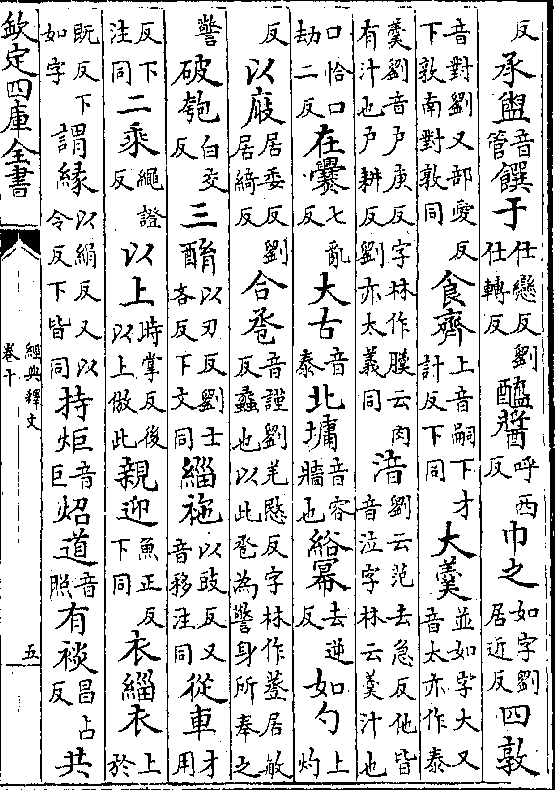 反承盥音管饌于仕戀反劉仕轉反醯醬呼西反巾之如字劉居近反四敦
音對劉又部愛反下敦南對敦同食齊上音嗣下才計反下同大羹並如字大又音太亦作泰
羹劉音户庚反字林作膜云肉有汁也户耕反劉亦太義同湆劉云范去急反他皆音泣字林云羹汁也
口恰口劫二反在爨七亂反大古音泰北墉音容牆也綌冪去逆反如勺上灼
反以庪居委反劉居綺反合卺音謹劉羌愍反字林作蓳居敏反蠡也以此卺為警身所奉之
警破匏白交反三酳以刃反劉士吝反下文同緇袘以豉反又音移注同從車才用
反下注同二乘繩證反以上時掌反後以上倣此親迎魚正反下同衣緇衣上於
既反下如字謂緣以絹反又以令反下皆同持炬音巨炤道音照有裧昌占反共
欽定四庫全書
經典釋文
卷十
五